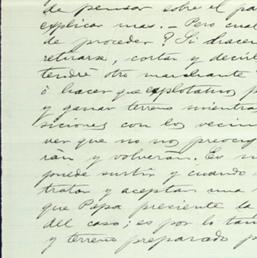 de pensar sobre el pa
explicar mas. — Pero cual
de proceder? Si
retirarse, cortar y decirle
tendré otro marchante
ó hacer que explotativo p
y ganar terreno mientra
siciones con los vecin
ver que no nos preocup
rán y volverán. Es n
puede surtir y cuando
tratar y aceptan una
que Pepa presiente la
del caso; es por lo tan
y terreno preparado p